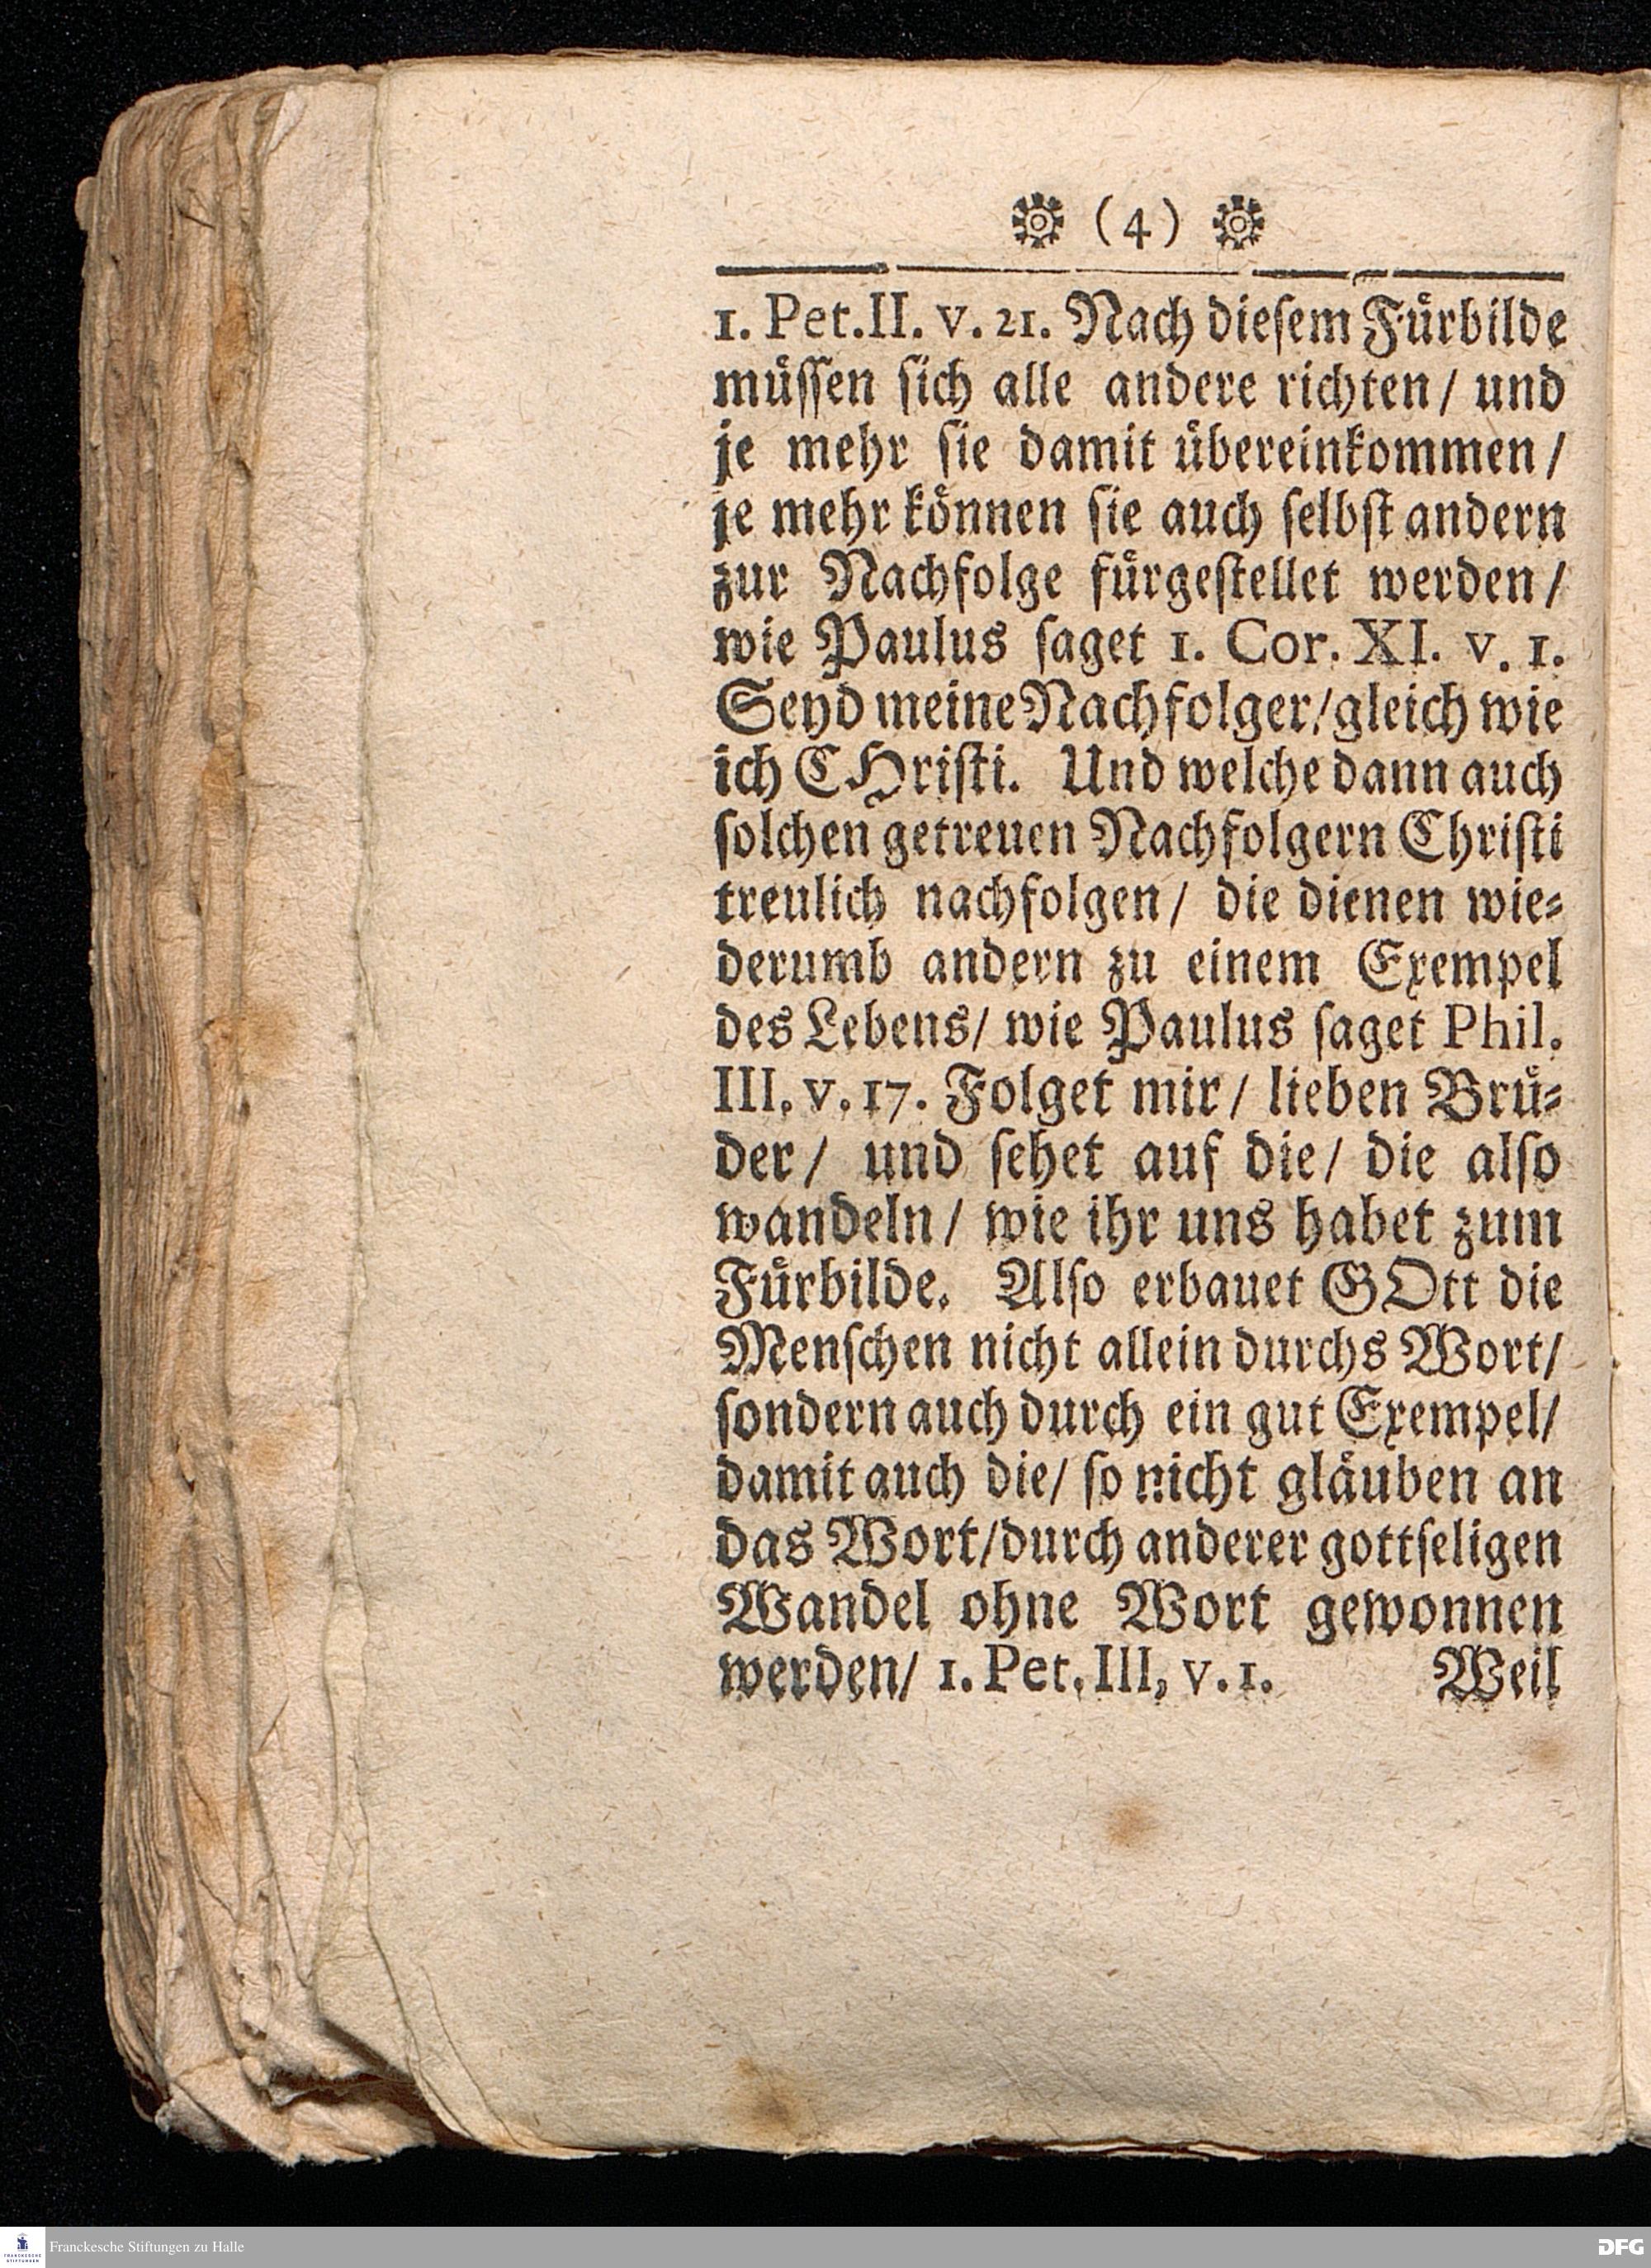 (4)
1. Pet. II. v. 21. Nach dieſem Fuͤrbilde
muͤſſen ſich alle andere richten/ und
je mehr ſie damit uͤbereinkommen/
je mehr koͤnnen ſie auch ſelbſt andern
zur Nachfolge fuͤrgeſtellet werden/
wie Paulus ſaget 1. Cor. XI. v. 1.
Seyd meine Nachfolger/gleich wie
ich CHriſti. Und welche dann auch
ſolchen getreuen Nachfolgern Chriſti
treulich nachfolgen/ die dienen wie⸗
derumb andern zu einem Exempel
des Lebens/ wie Paulus ſaget Phil.
III. v. 17. Folget mir/ lieben Bruͤ⸗
der/ und ſehet auf die/ die alſo
wandeln/ wie ihr uns habet zum
Fuͤrbilde. Alſo erbauet GOtt die
Menſchen nicht allein durchs Wort/
ſondern auch durch ein gut Exempel/
damit auch die/ ſo nicht glaͤuben an
das Wort/durch anderer gottſeligen
Wandel ohne Wort gewonnen
werden/ 1. Pet. III, v. 1. Weil
FRANCKESCHE STIFTUNGEN
Franckesche Stiftungen zu Halle
DFG